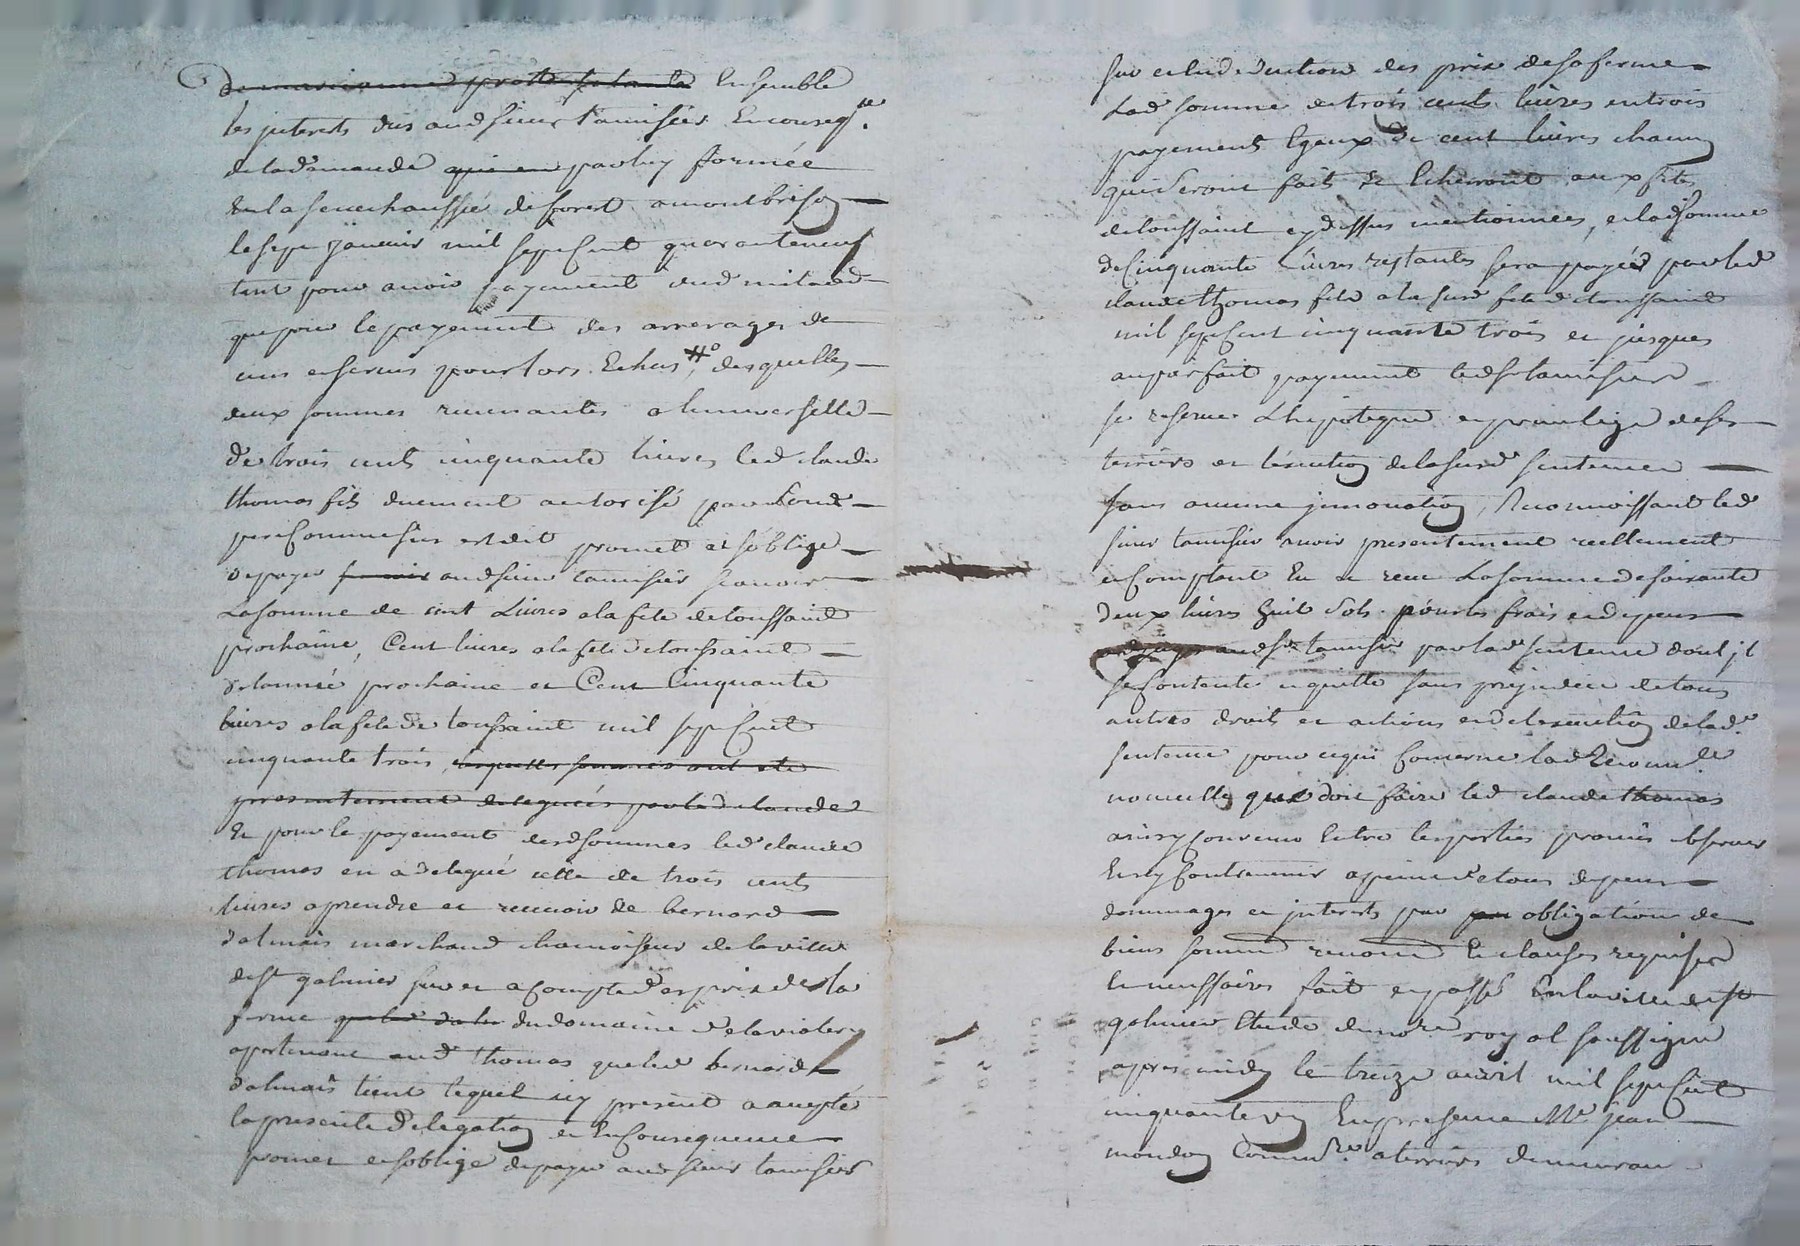 Ensemble
les jnterets dus aud sieur tamisier En conseq.ce
de la demande qui en par luy formée
En la senechaussée de forest a montbrison
le sept janvier mil sept Cent quarante neuf
tant pour avoir payement dud mi lod
que pour le payement des arrerages de
cens et servis pour lors Echus, desquelles
deux sommes revenantes a l'universelle
de trois cents cinquante livres led claude
thomas fils duement autorisé par sond
pere Comme sus est dit promet et s'oblige
de payer aud sieur tamisier scavoir
La somme de cent Livres a la fete de toussaint
prochaine, Cent livres a la fete de toussaint
de l'année prochaine et Cent Cinquante
livres a la fete de toussaint mil sept Cent
cinquante trois, lesquelles sommes ont ete
presentement deleguées par led claude
Et pour le payement desd sommes led claude
thomas en a delegué celle de trois cents
livres a prendre et recevoir de bernard
dalmais marchand chamoiseur de la ville
de st galmier sur et a Compte des prix de la
ferme du domaine de la violery
apartenant aud thomas que led bernard
dalmais tient lequel icy present a accepté
la presente delegation et En Consequence
promet et s'oblige de payer aud sieur tamisier
sur et en deduction des prix de sa ferme
Lad somme de trois cents livres en trois
payements Egaux de cent livres chacun
qui seront faits et Echeront aux fetes
de toussaint cy dessus mentionnées, et lad somme
de Cinquante Livres restante sera payée par led
claude thomas fils a la susd fete de toussaint
mil sept Cent cinquante trois et jusques
au parfait payement led sr tamisier
se reserve L'hipoteque et privilege de ses
terriers et l'execution de la susd sentence
sans aucune jnnovation, Reconnoissant led
sieur tamisier avoir presentement reellement
et Comptant Eu et receu La somme de soixante
deux livres huit sols pour les frais et depens
adjugés aud sr tamisier par lad sentence dont jl
se Contente et quitte sans prejudice de tous
autres droits et actions et de l'execution de lad.
sentence pour ce qui Concerne lad Reconn.ce
nouvelle que doit faire led claude thomas
ainsy Convenu Entre les parties promis observer
Et n'y Contrevenir a peine de tous depens
dommages et jnterets par obligation de
biens soumis renoncé Et clauses requises
Et necessaires fait et passé En la ville de st
galmier Etude du no.re royal soussigné
apres midy le treize avril mil sept Cent
cinquante un En presence Me jean
mondon Comm.re a terriers demeurant